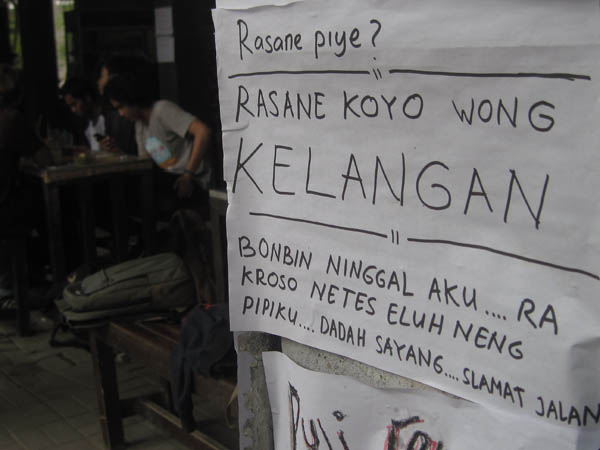 Rasane piye?
RASANE KOYO WONG
KELANGAN
BONBIN NINGGAL AKU.... RA
KROSO NETES ELUH NENG
PIPIKU.... DADAH SAYANG....SLAMAT JALAN